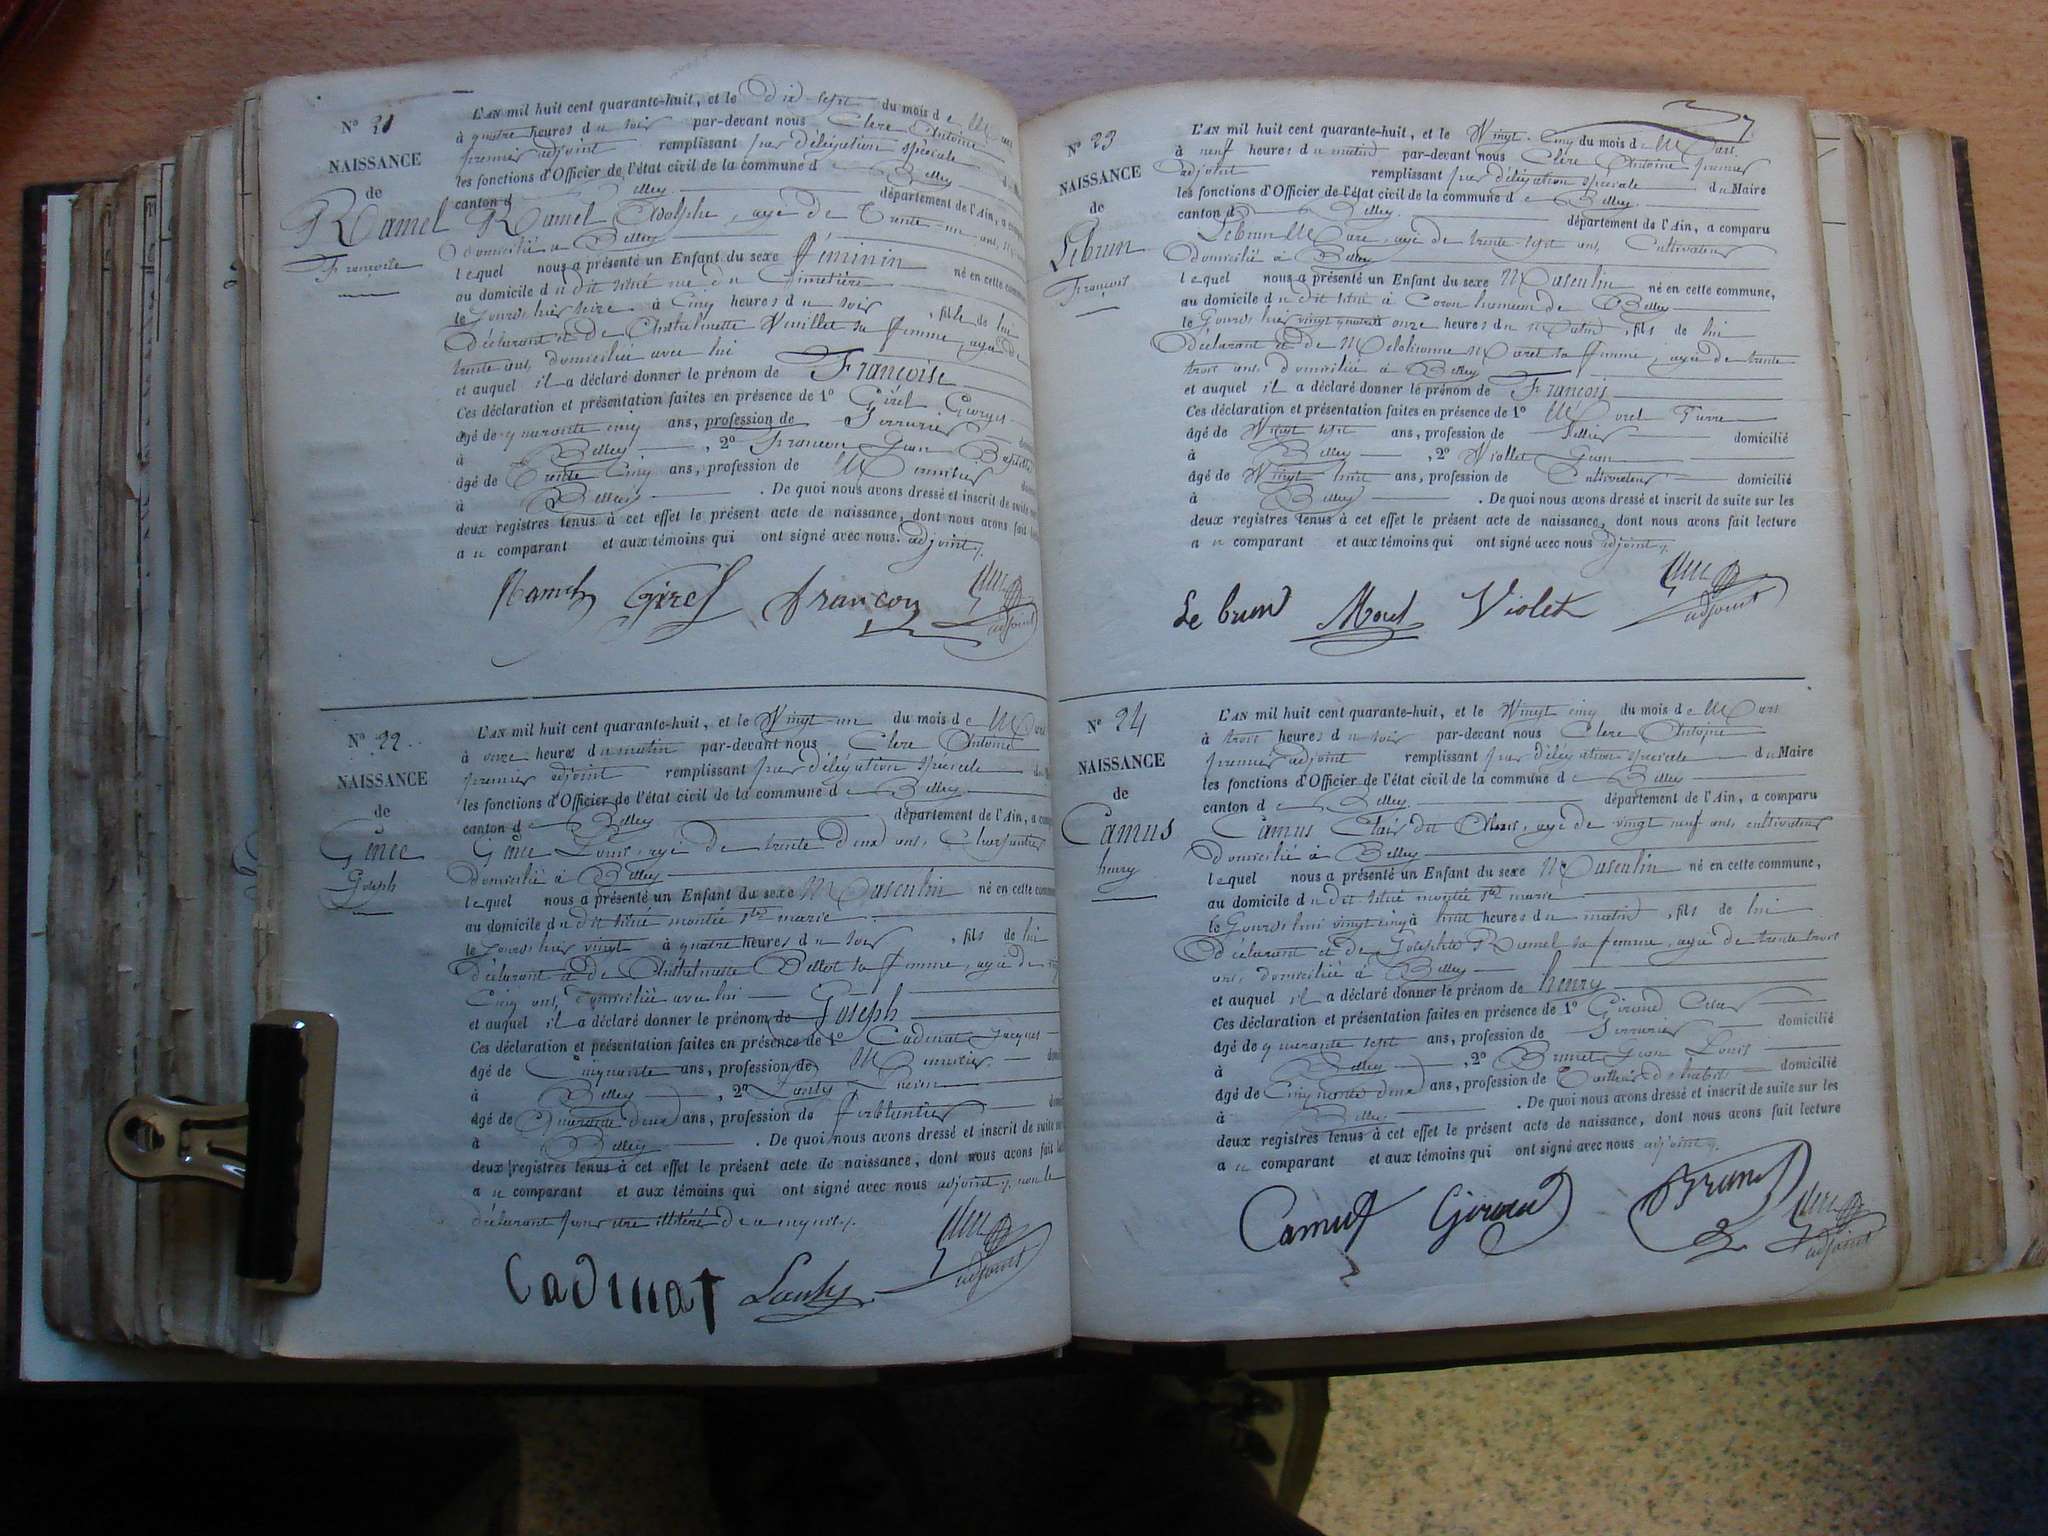 N° 21
NAISSANCE
de
Ramel
Françoise
L'AN mil huit cent quarante-huit, et le Dix sept du mois de Mars
à quatre heures du soir par-devant nous Clerc Antoine
premier adjoint remplissant par délégation spéciale
les fonctions d'Officier de l'état civil de la commune de Belley
canton de Belley département de l'Ain, a
Ramel Adolphe, agé de Trente un ans,
domicilié à Belley
lequel nous a présenté un Enfant du sexe féminin né en cette
au domicile du dit situé rue du Cimetière
le jours hier seize à Cinq heures du soir, fille de lui
déclarant et de Vuillet sa femme, agée de
trente ans, domiciliée avec lui
et auquel il a déclaré donner le prénom de Françoise
Ces déclaration et présentation faites en présence de 1° Girel Georges
âgé de quarante cinq ans, profession de Serrurier
à Belley, 2° Françon Jean Baptiste
âgé de Trente Cinq ans, profession de Menuisier
à Belley. De quoi nous avons dressé et inscrit de suite sur
deux registres tenus à cet effet le présent acte de naissance, dont nous avons fait
au comparant et aux témoins qui ont signé avec nous. adjoint
Ramel Girel françon Clerc
adjoint
N° 22
NAISSANCE
de
Joseph
L'AN mil huit cent quarante-huit, et le Vingt un du mois de Mars
à onze heures du matin par-devant nous Clerc Antoine
premier adjoint remplissant par délégation spéciale
les fonctions d'Officier de l'état civil de la commune de Belley
canton de Belley département de l'Ain, a
Louis, agé de trente deux ans, Charpentier
domicilié à Belley
lequel nous a présenté un Enfant du sexe Masculin né en cette
au domicile du dit situé montée Ste marie
le jours hier vingt à quatre heures du soir, fils de lui
déclarant et de Bellot sa femme, agée de
Cinq ans, domiciliée avec lui
et auquel il a déclaré donner le prénom de Joseph
Ces déclaration et présentation faites en présence de 1° Cadinat Jacques
âgé de Cinquante ans, profession de Menuisier
à Belley, 2°
âgé de Quarante deux ans, profession de ferblantier
à Belley. De quoi nous avons dressé et inscrit de suite
deux registres tenus à cet effet le présent acte de naissance, dont nous avons fait
au comparant et aux témoins qui ont signé avec nous adjoint, non le
déclarant pour être illitéré de ce enquis
Cadinat Clerc
adjoint
N° 23
NAISSANCE
de
Lebrun
François
L'AN mil huit cent quarante-huit, et le Vingt Cinq du mois de Mars
à neuf heures du matin par-devant nous Clerc Antoine premier
adjoint remplissant par délégation spéciale du Maire
les fonctions d'Officier de l'état civil de la commune de Belley
canton de Belley département de l'Ain, a comparu
Lebrun Marc, agé de trente sept ans, Cultivateur
domicilié à Belley
lequel nous a présenté un Enfant du sexe Masculin né en cette commune,
au domicile du dit situé à Coron hameau de Belley
le Jours hier vingt quatre à onze heures du Matin, fils de lui
déclarant et de Moret sa femme, agée de trente
trois ans, domiciliée à Belley
et auquel il a déclaré donner le prénom de François
Ces déclaration et présentation faites en présence de 1° Morel Pierre
âgé de Vingt sept ans, profession de Sellier domicilié
à Belley, 2° Viollet Jean
âgé de Vingt huit ans, profession de Cultivateur domicilié
à Belley. De quoi nous avons dressé et inscrit de suite sur les
deux registres tenus à cet effet le présent acte de naissance, dont nous avons fait lecture
au comparant et aux témoins qui ont signé avec nous adjoint
Le brun Morel Violet Clerc
adjoint
N° 24
NAISSANCE
de
Camus
henry
L'AN mil huit cent quarante-huit, et le Vingt cinq du mois de Mars
à trois heures du soir par-devant nous Clerc Antoine
premier adjoint remplissant par délégation spéciale du Maire
les fonctions d'Officier de l'état civil de la commune de Belley
canton de Belley département de l'Ain, a comparu
Camus Clair dit, agé de vingt neuf ans, cultivateur
domicilié à Belley
lequel nous a présenté un Enfant du sexe Masculin né en cette commune,
au domicile du dit situé montée Ste marie
le Jourd'hui vingt cinq à huit heures du matin, fils de lui
déclarant et de Josephte Rumel sa femme, agée de trente trois
ans, domiciliée à Belley
et auquel il a déclaré donner le prénom de henry
Ces déclaration et présentation faites en présence de 1° Giroud César
âgé de quarante sept ans, profession de Serrurier domicilié
à Belley, 2° Brunet Jean Louis
âgé de Cinquante deux ans, profession de Tailleur d'habits domicilié
à Belley. De quoi nous avons dressé et inscrit de suite sur les
deux registres tenus à cet effet le présent acte de naissance, dont nous avons fait lecture
au comparant et aux témoins qui ont signé avec nous adjoint
Camus Giroud Brunet Clerc
adjoint